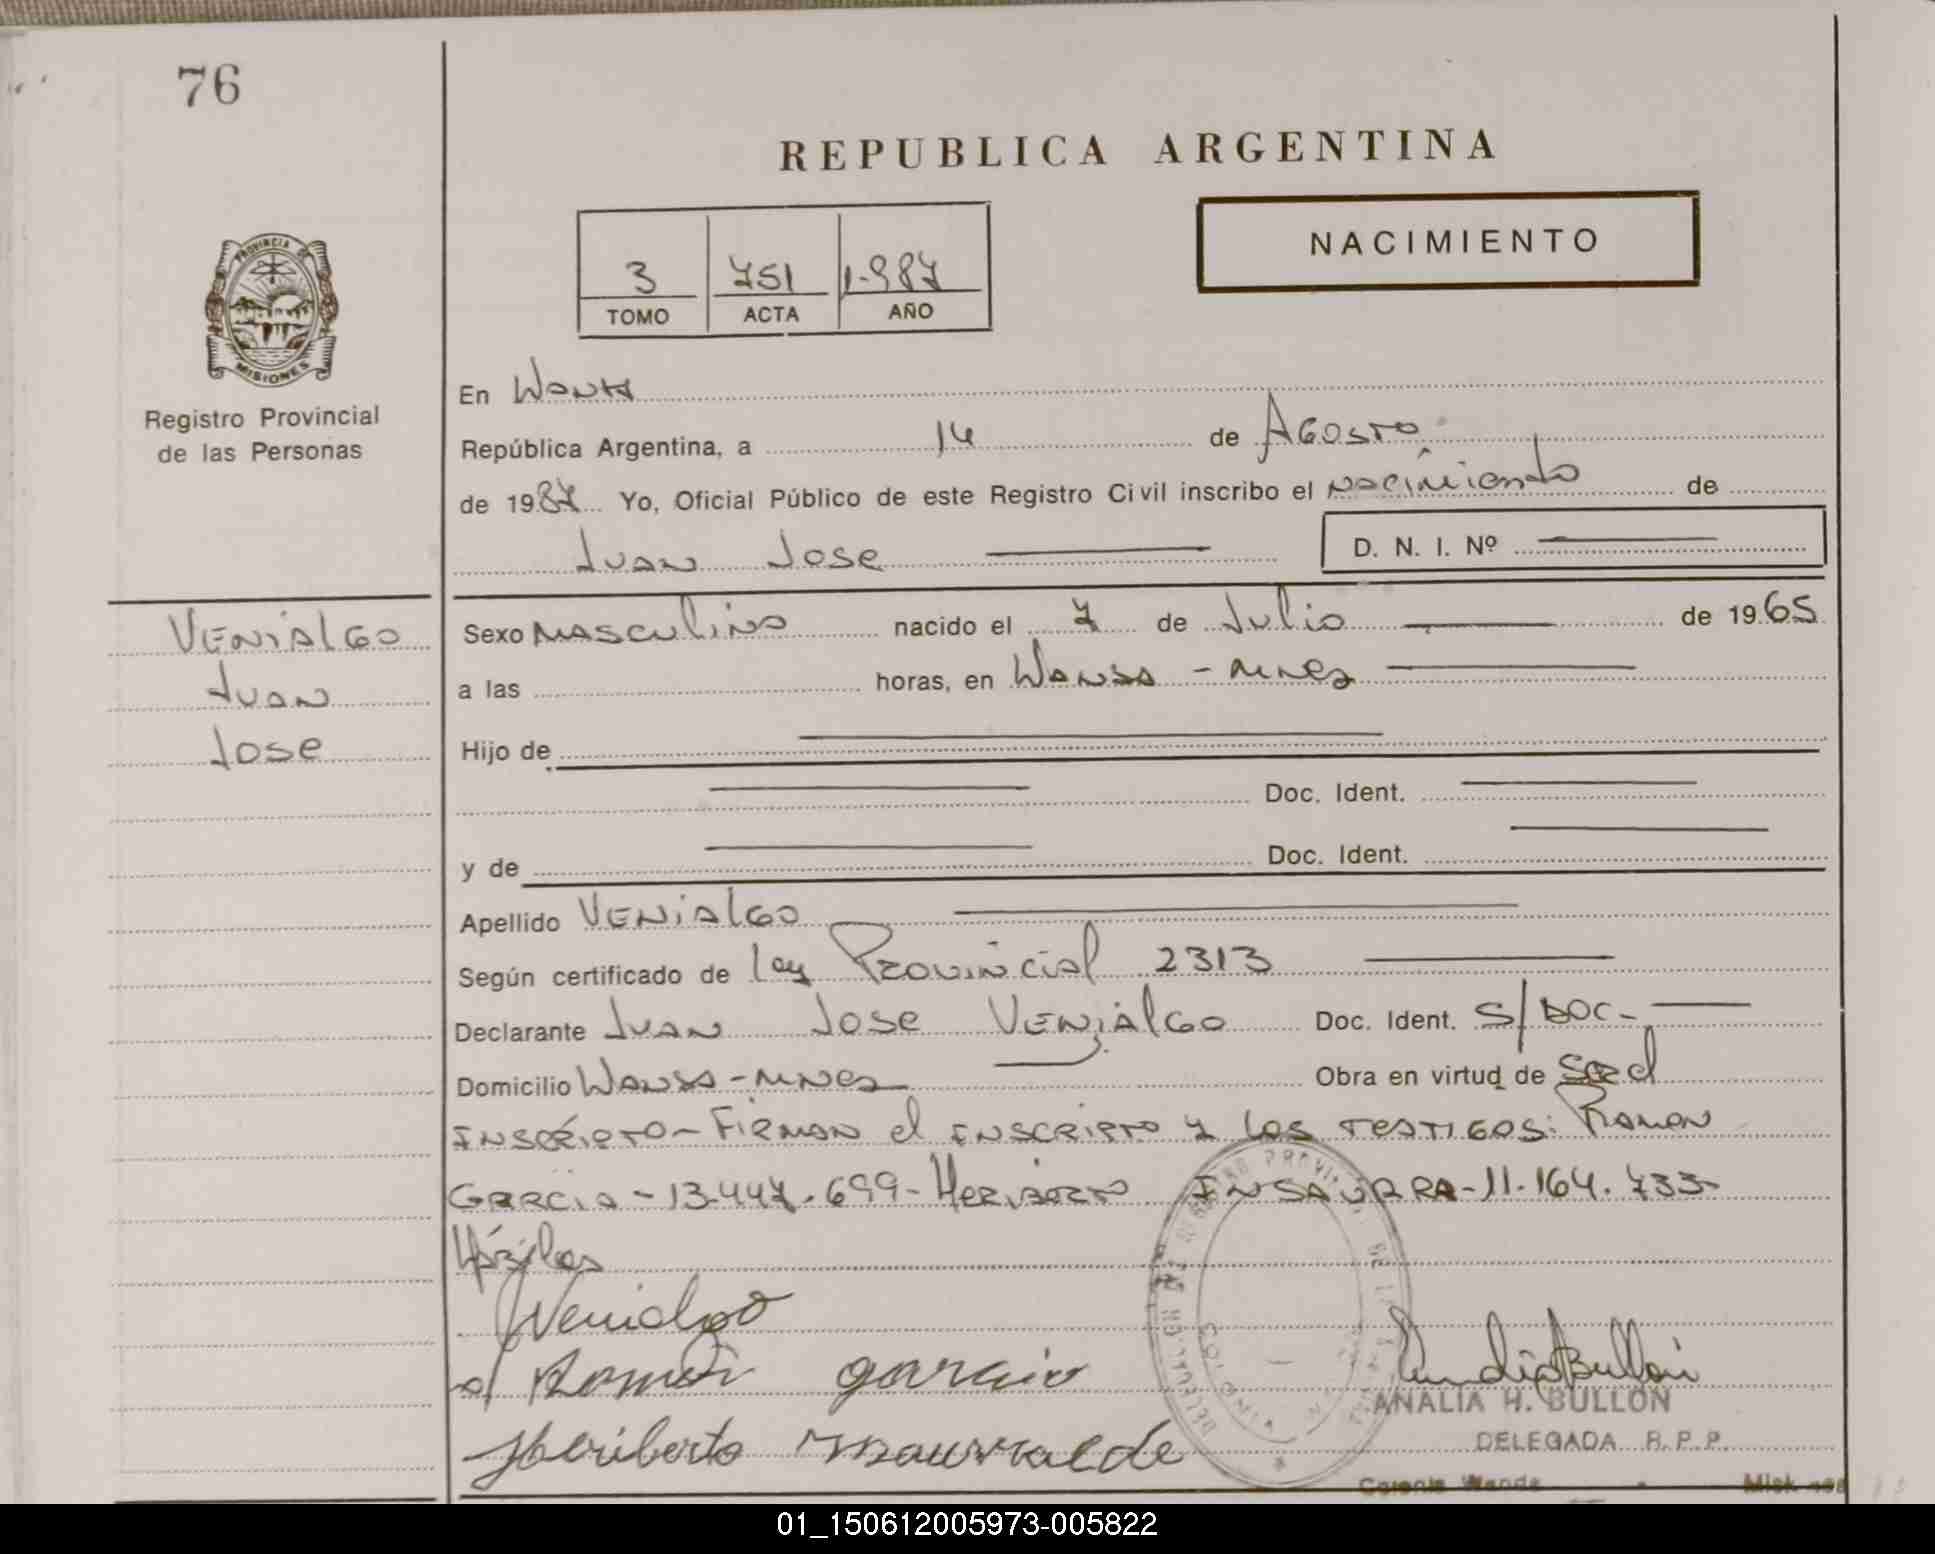 76
REPUBLICA ARGENTINA
NACIMIENTO
3 751 1.987
TOMO ACTA AÑO
PROVINCIA DE
MISIONES
Registro Provincial
de las Personas
En Wanda
República Argentina, a 14 de Agosto
de 1987 Yo, Oficial Público de este Registro Civil inscribo el nacimiento de
Juan Jose D. N. I. Nº
VENIALGO
Juan
Jose
Sexo masculino nacido el 7 de Julio de 1965
a las horas, en Wanda - Mnes
Hijo de
Doc. Ident.
y de Doc. Ident.
Apellido VENIALGO
Según certificado de Ley Provincial 2313
Declarante Juan Jose Venialgo Doc. Ident. S/Doc-
Domicilio Wanda - Mnes Obra en virtud de ser el
inscripto - Firman el inscripto y los testigos: Ramon
Garcia - 13.447.699 - Heriberto Insaurra - 11.164.733-
Hábiles
Venialgo
Ramon garcia
Heriberto Insaurralde
ANALIA H. BULLON
DELEGADA R.P.P.
Colonia Wanda Misiones
01_150612005973-005822